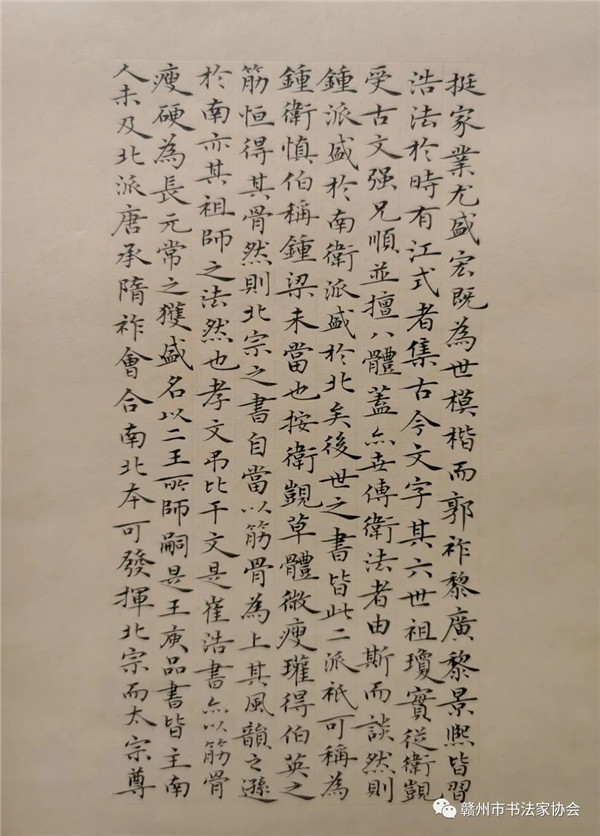 挺家業尤盛宏既為世模楷而郭祚黎廣黎景熙皆習
浩法於時有江式者集古今文字其六世祖瓊實從衛覬
受古文强兄順並擅八體蓋亦世傳衛法者由斯而談然則
鍾派盛於南衛派盛於北矣後世之書皆此二派祇可稱為
鍾衛慎伯稱鍾梁未當也按衛覬草體微瘦瓘得伯英之
筋恒得其骨然則北宗之書自當以筋骨為上其風韻之遜
於南亦其祖師之法然也孝文弔比干文是崔浩書亦以筋骨
瘦硬為長元常之獲盛名以二王所師嗣是王庾品書皆主南
人未及北派唐承隋祚會合南北本可發揮北宗而太宗尊
赣州市书法家协会